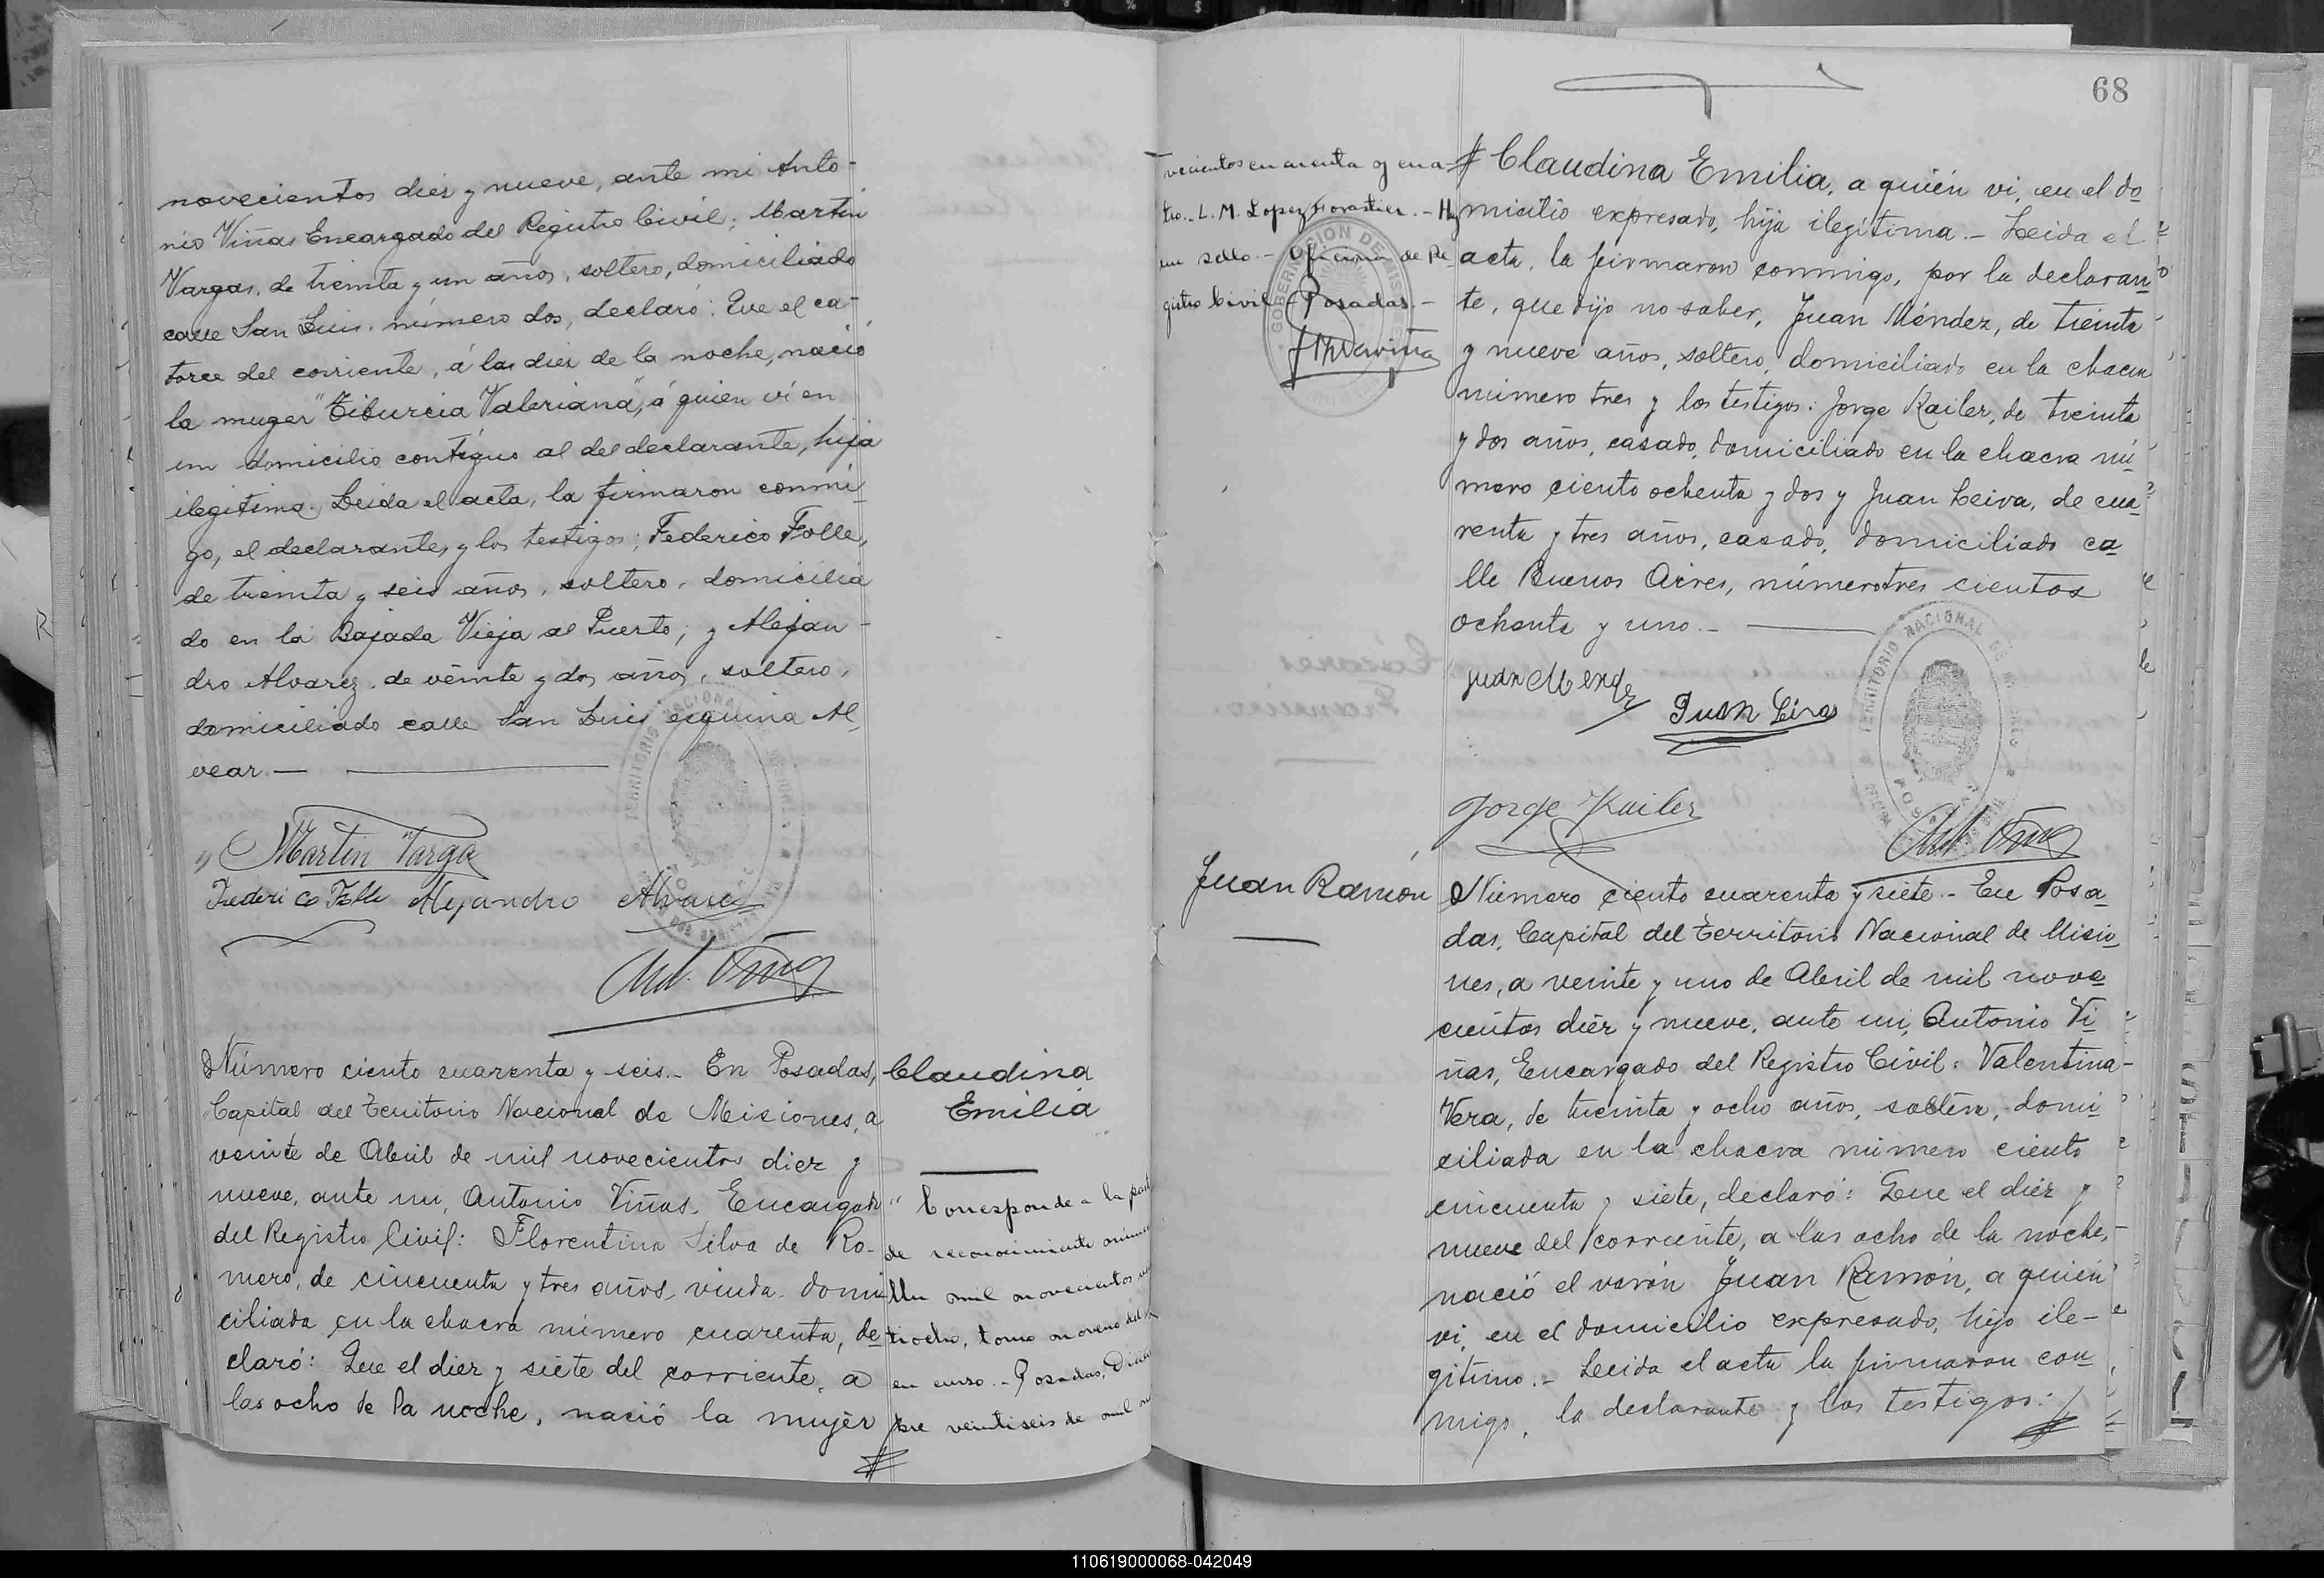 novecientos diez y nueve, ante mi Anto-
nio Viñas Encargado del Registro Civil; Martin
Vargas, de treinta y un años, soltero, domiciliado
calle San Luis, número dos, declaró: Que el ca-
torce del corriente, á las diez de la noche, nació
la muger "Tiburcia Valeriana", á quien ví en
un domicilio contíguo al del declarante, hija
ilegitima. Leida el acta, la firmaron conmi-
go, el declarante y los testigos; Federico Folle,
de treinta y seis años, soltero, domicilia
do en la Bajada Vieja al Puerto; y Alejan-
dro Alvarez, de veinte y dos años, soltero,
domiciliado calle San Luis esquina Al
vear. —
Martin Varga
Federico Folle Alejandro Alvarez
Ant. Viñas
Número ciento cuarenta y seis.- En Posadas,
Capital del Territorio Nacional de Misiones, a
veinte de Abril de mil novecientos diez y
nueve, ante mi, Antonio Viñas, Encargado
del Registro Civil: Florentina Silva de Ro-
mero, de cincuenta y tres años, viuda, domi
ciliada en la chacra número cuarenta, de
claró: Que el diez y siete del corriente, a
las ocho de la noche, nació la mujer
Claudina
Emilia
" Corresponde a la
de reconocimiento
mil novecientos
tiocho, tomo noveno del
en curso.- Posadas,
bre veintiseis de mil
68
vecientos cuarenta y cua-
tro.- L. M. Lopez Forastier.- Hay
un sello.- Oficina de Re-
gistro Civil - Posadas.-
GOBERNACION DE MISIONES
Claudina Emilia, a quién vi, en el do
micilio expresado, hija ilegítima.- Leida el
acta, la firmaron conmigo, por la declaran
te, que dijo no saber, Juan Méndez, de treinta
y nueve años, soltero, domiciliado en la chacra
número tres y los testigos: Jorge Kailer, de treinta
y dos años, casado, domiciliado en la chacra nú
mero ciento ochenta y dos y Juan Leiva, de cua
renta y tres años, casado, domiciliado ca
lle Buenos Aires, número tres cientos
ochenta y uno.-
TERRITORIO NACIONAL DE MISIONES
Juan
Juan
Jorge Kailer
Ant. Viñas
Juan Ramón
Número ciento cuarenta y siete.- En Posa
das, Capital del Territorio Nacional de Misio
nes, a veinte y uno de Abril de mil nove
cientos diéz y nueve, ante mi, Antonio Vi
ñas, Encargado del Registro Civil: Valentina
Vera, de treinta y ocho años, soltera, domi
ciliada en la chacra número ciento
cincuenta y siete, declaró: Que el diéz y
nueve del corriente, a las ocho de la noche,
nació el varón Juan Ramón, a quién
vi, en el domicilio expresado, hijo ile-
gítimo.- Leida el acta la firmaron con
migo, la declarante y los testigos:
110619000068-042049